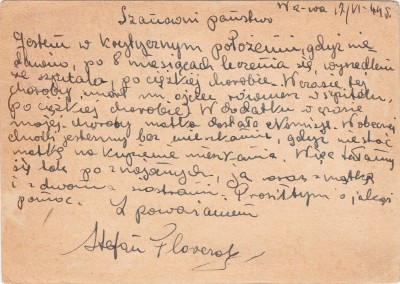 Wa-wa 12/VI-44 r.
Szanowni państwo
Jestem w krytycznym położeniu, gdyż nie
dawno, po 8 miesiącach leczenia się, wyszedłem
ze szpitala, po ciężkiej chorobie. W czasie tej
choroby umarł mi ojciec również w szpitalu,
(po ciężkiej chorobie). W dodatku w czasie
mojej choroby matka dostała eksmisję. W obecnej
chwili jesteśmy bez mieszkania, gdyż nie stać
matkę na kupienie mieszkania. Więc tułamy
się tak po znajomych, ja oraz z matką
i z dwoma siostrami. Prosiłbym o jakąś
pomoc.
Z poważaniem
Stefan